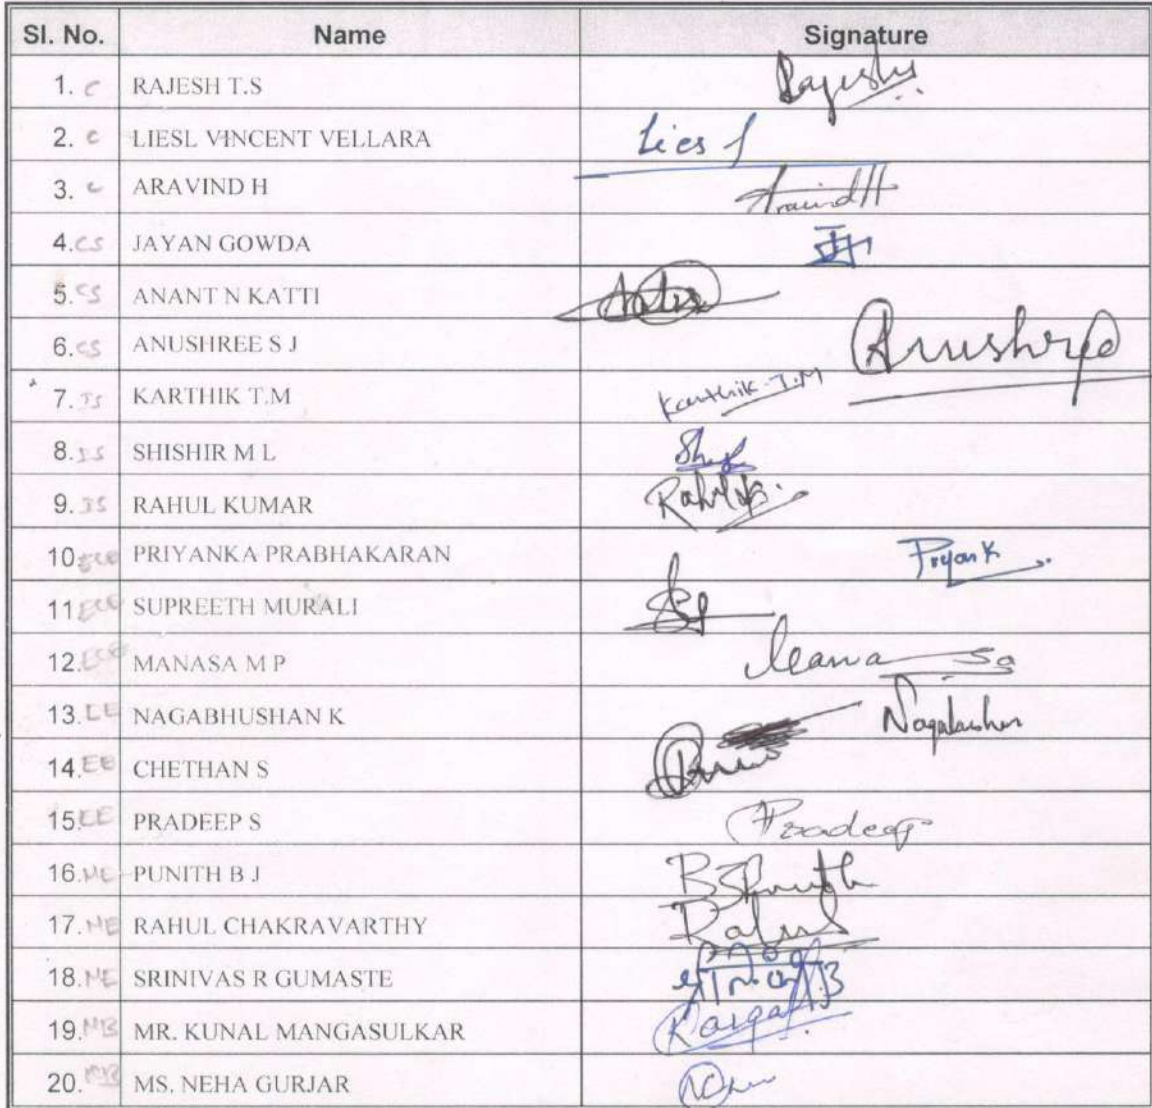 Sl. No. Name Signature
1. C RAJESH T.S Rajesh
2. C LIESL VINCENT VELLARA Liesl
3. C ARAVIND H Aravind H
4. CS JAYAN GOWDA
5. CS ANANT N KATTI
6. CS ANUSHREE S J Anushree
7. IS KARTHIK T.M Karthik.T.M
8. IS SHISHIR M L
9. IS RAHUL KUMAR
10 ECE PRIYANKA PRABHAKARAN Priyank
11 ECE SUPREETH MURALI
12. ECE MANASA M P
13. EE NAGABHUSHAN K Nagabushan
14. EE CHETHAN S
15. EE PRADEEP S Pradeep
16. ME PUNITH B J
17. ME RAHUL CHAKRAVARTHY Rahul
18. ME SRINIVAS R GUMASTE
19. MB MR. KUNAL MANGASULKAR
20. MB MS. NEHA GURJAR